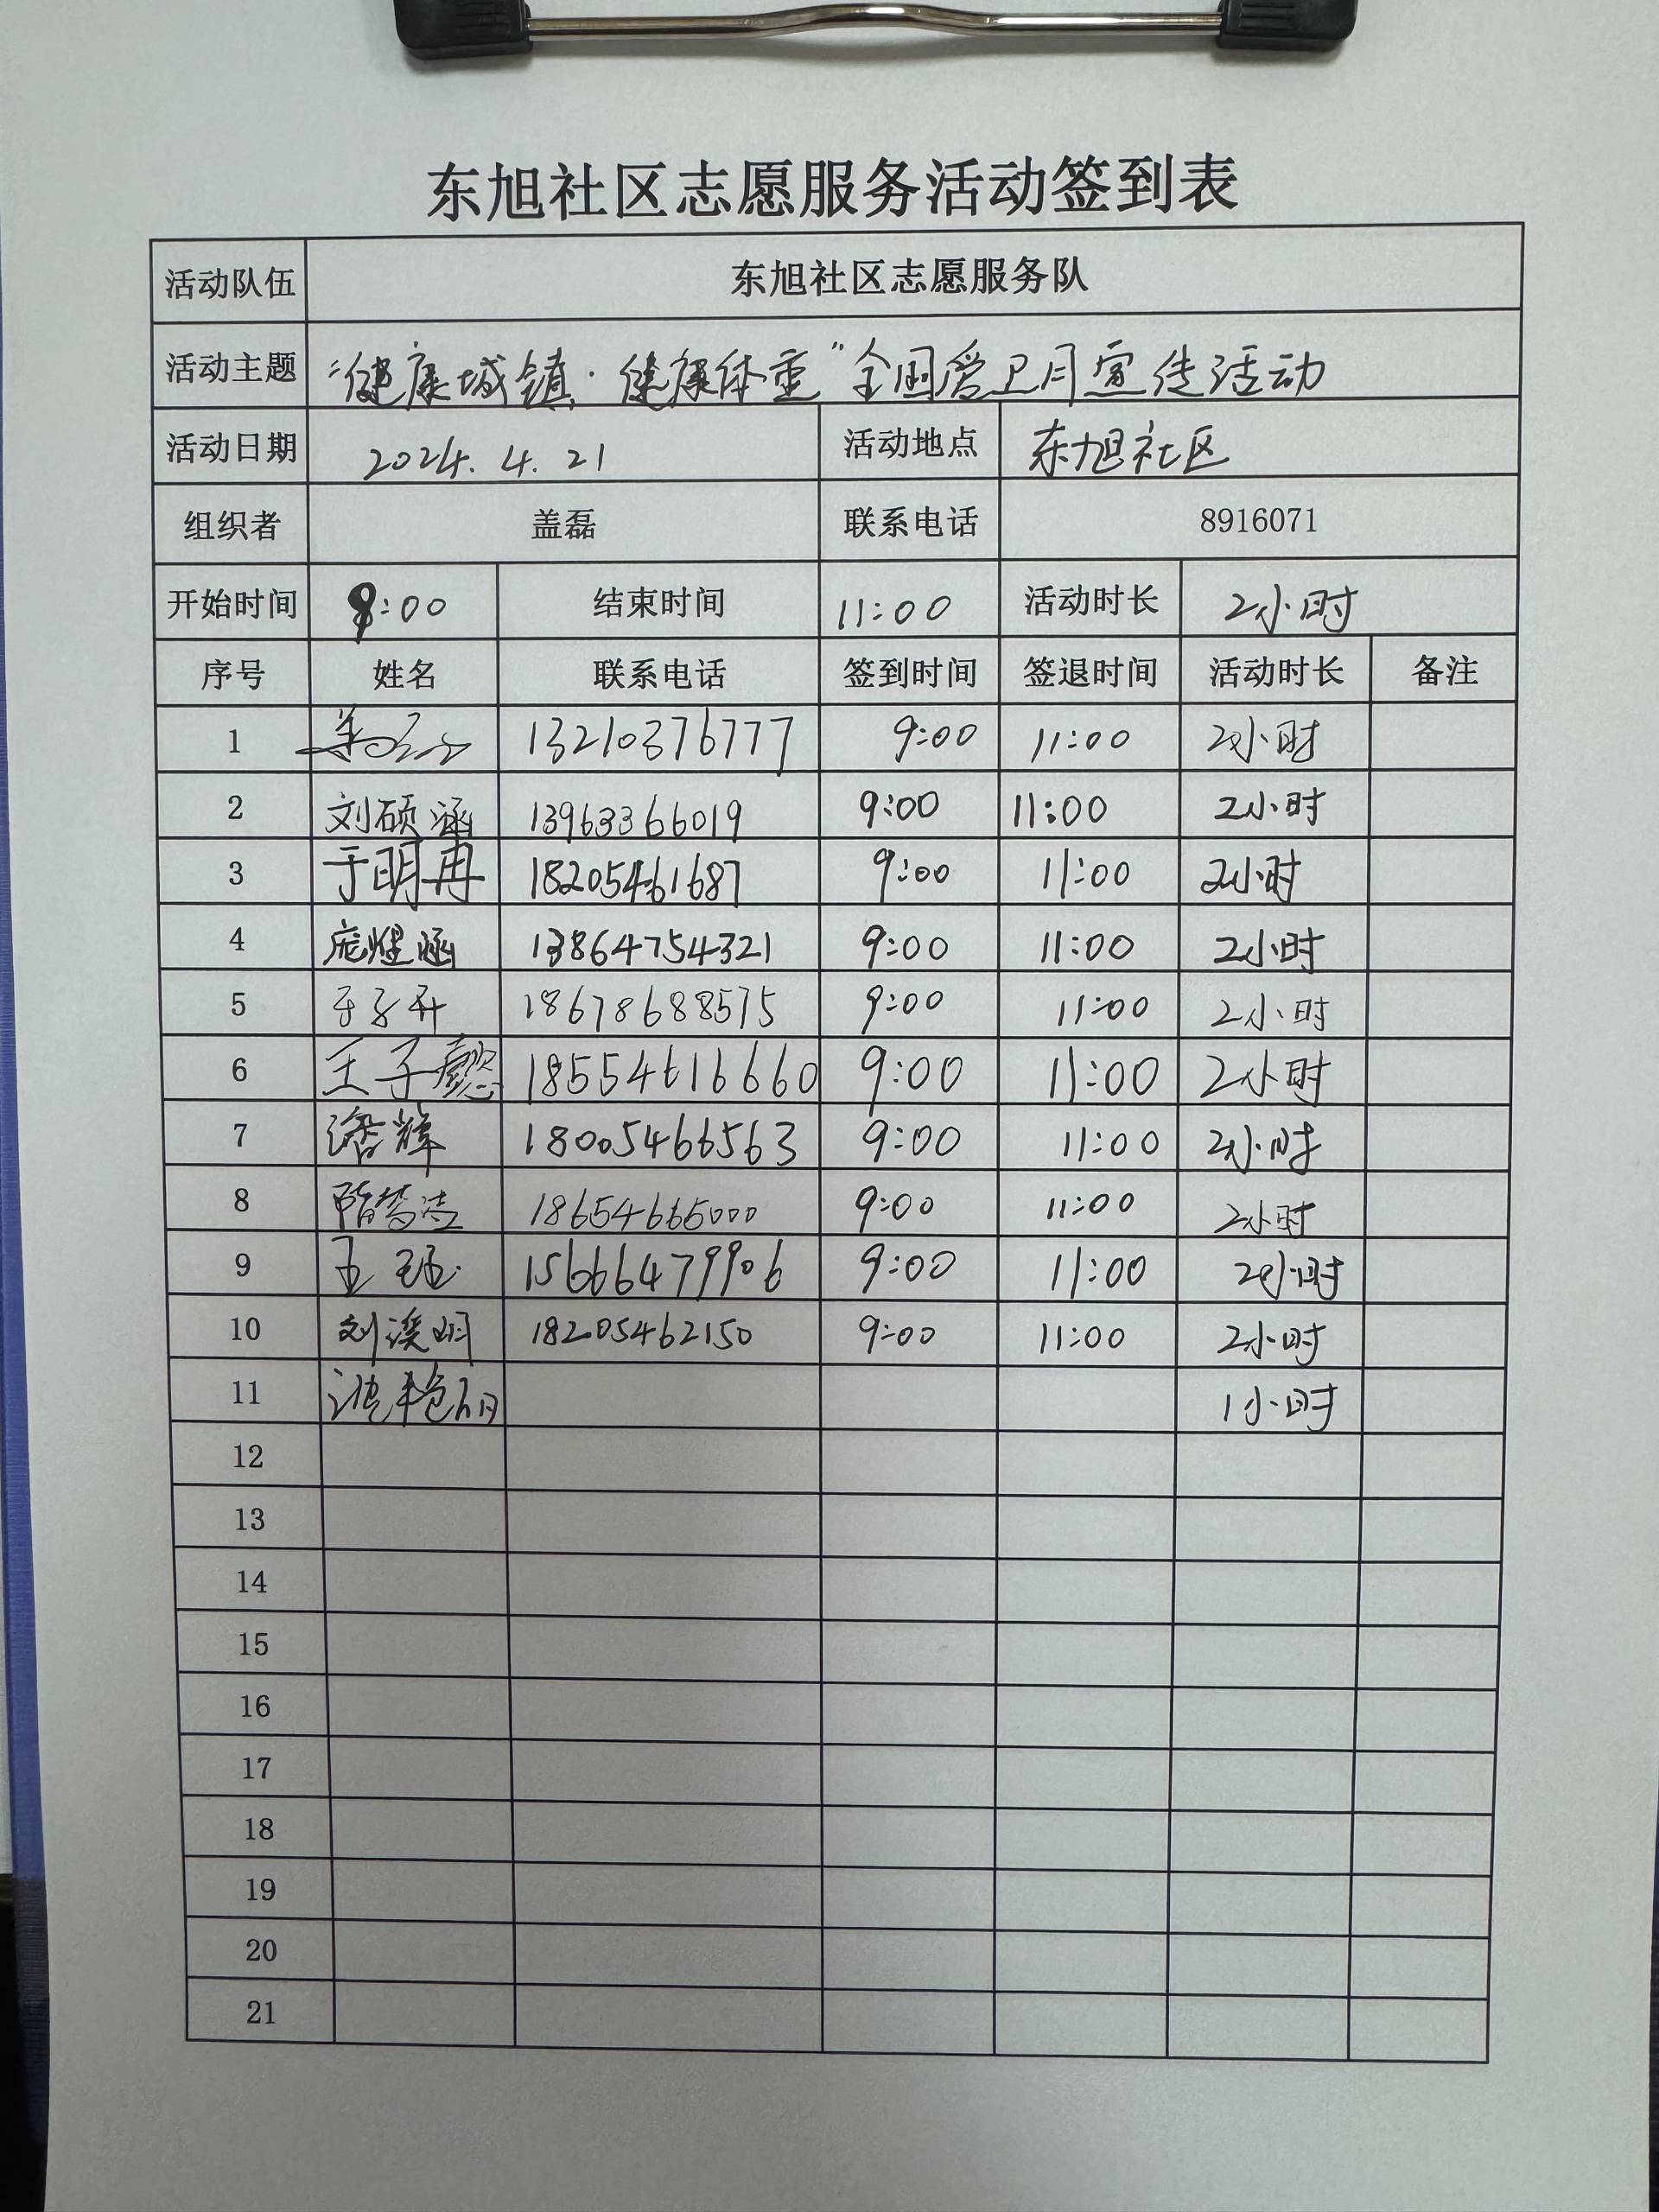 东旭社区志愿服务活动签到表
活动队伍 东旭社区志愿服务队
活动主题 “健康城镇·健康体重”全国爱卫月宣传活动
活动日期 2024.4.21 活动地点 东旭社区
组织者 盖磊 联系电话 8916071
开始时间 9:00 结束时间 11:00 活动时长 2小时
序号 姓名 联系电话 签到时间 签退时间 活动时长 备注
1 13210376777 9:00 11:00 2小时
2 刘硕涵 13963366019 9:00 11:00 2小时
3 于明冉 18205461687 9:00 11:00 2小时
4 庞煜涵 13864754321 9:00 11:00 2小时
5 18678688575 9:00 11:00 2小时
6 王子懿 18554616660 9:00 11:00 2小时
7 潘辉 18005466563 9:00 11:00 2小时
8 18654665000 9:00 11:00 2小时
9 王珏 15666479906 9:00 11:00 2小时
10 刘溪明 18205462150 9:00 11:00 2小时
11 1小时
12
13
14
15
16
17
18
19
20
21